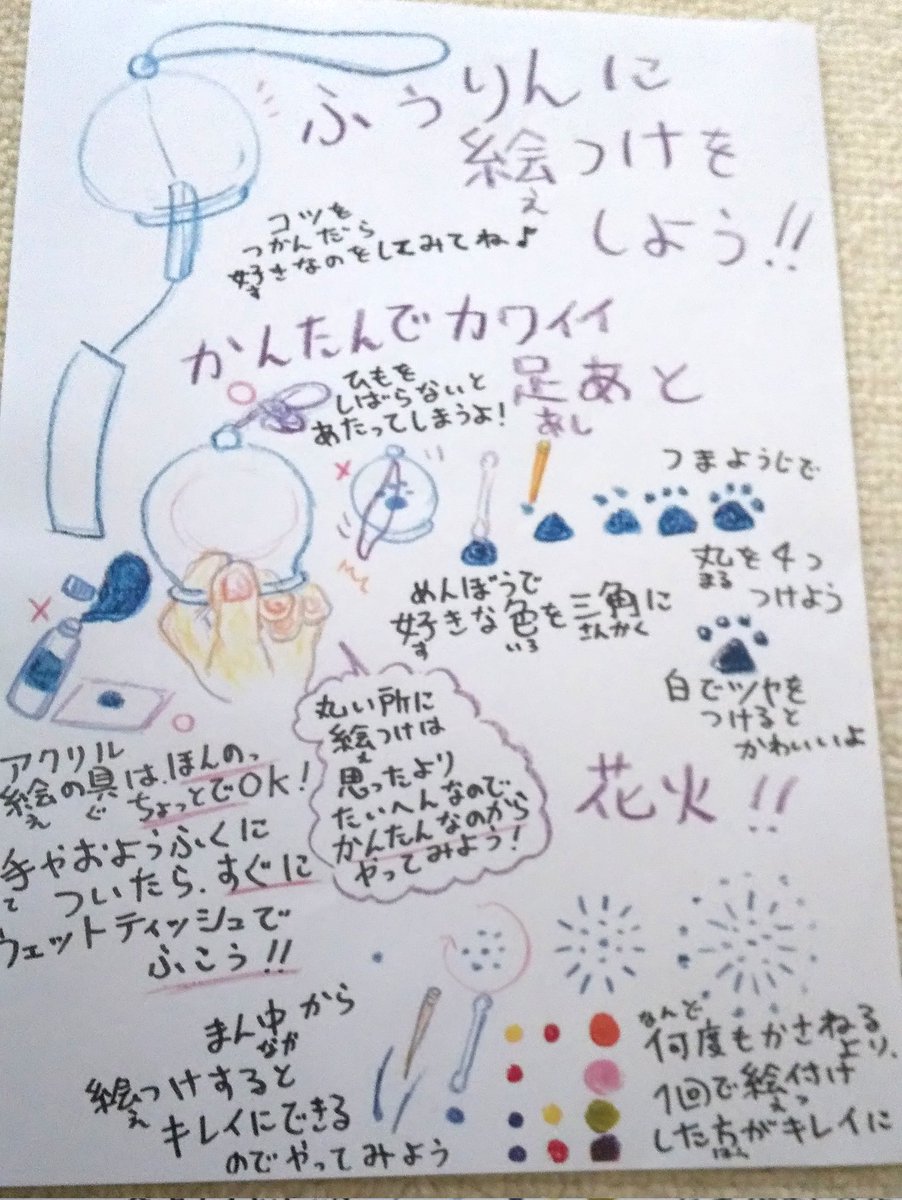 ふうりんに
絵つけを
え
しよう!!
コツを
つかんだら
好きなのをしてみてね♪
す
かんたんでカワイイ
足あと
あし
ひもを
しばらないと
あたってしまうよ!
つまようじで
丸を4つ
まる
つけよう
めんぼうで
好きな色を三角に
す いろ さんかく
白でツヤを
つけると
かわいいよ
丸い所に
絵つけは
え
思ったより
たいへんなので、
かんたんなのから
やってみよう!
アクリル
絵の具は、ほんのっ
え ぐ
ちょっとでOK!
手やおようふくに
て
ついたら、すぐに
ウェットティッシュで
ふこう!!
花火!!
まん中から
なか
絵つけすると
え
キレイにできる
のでやってみよう
なんど
何度もかさねる
より、
1回で絵付け
え っ
した方がキレイに
ほう